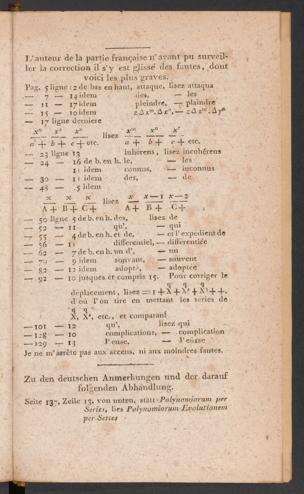 L'auteur de la partie française n'ayant pu surveil-
ler la correction il s'y est glissé des fautes, dont
voici les plus graves.
Pag. 5 ligne : 2 de bas en haut, attaque, lisez attaqua
— 7 — 14 idem des, — les
— 11 — 17 idem pleindre, — plaindre
— 15 — 10 idem
— 17 ligne derniere
xⁿ xⁿ xⁿ lisez xᵐ xⁿ xʳ
a + b + c + etc. a + b + c + etc.
— 23 ligne 13 inhérens, lisez incohérens
— 24 — 16 de b. en h. le, — les
11 idem connus, — inconnus
— 30 — 11 idem des, — de
— 48 — 5 idem
x x lisez x x—1 x—2
A + B + C + A + B + C +
— 50 ligne 5 de b. en h. des, lisez de
— 52 — 11 qu', — qui
— 55 — 4 de b. en h. et de, — et l'expedient de
— 56 — 11 differentiel, — differentiée
— 62 — 7 de b. en h. un d', — un
— 70 — 9 idem souvant, — souvent
— 82 — 12 idem adopté, — adoptée
— 92 — 10 jusques et compris 15. Pour corriger le
déplacement, lisez = 1 + X + X² + X³ + +,
d'où l'on tire en mettant les series de
X, X², etc., et comparant
— 101 — 12 qu', lisez qui
— 128 — 10 complications, — complication
— 129 — 13 J'euse, — J'eusse
Je ne m'arrête pas aux accens, ni aux moindres fautes.
Zu den deutschen Anmerkungen und der darauf
folgenden Abhandlung.
Seite 137, Zeile 13, von unten, statt Polynomiorum per
Series, lies Polynomiorum Evolutionem
per Series